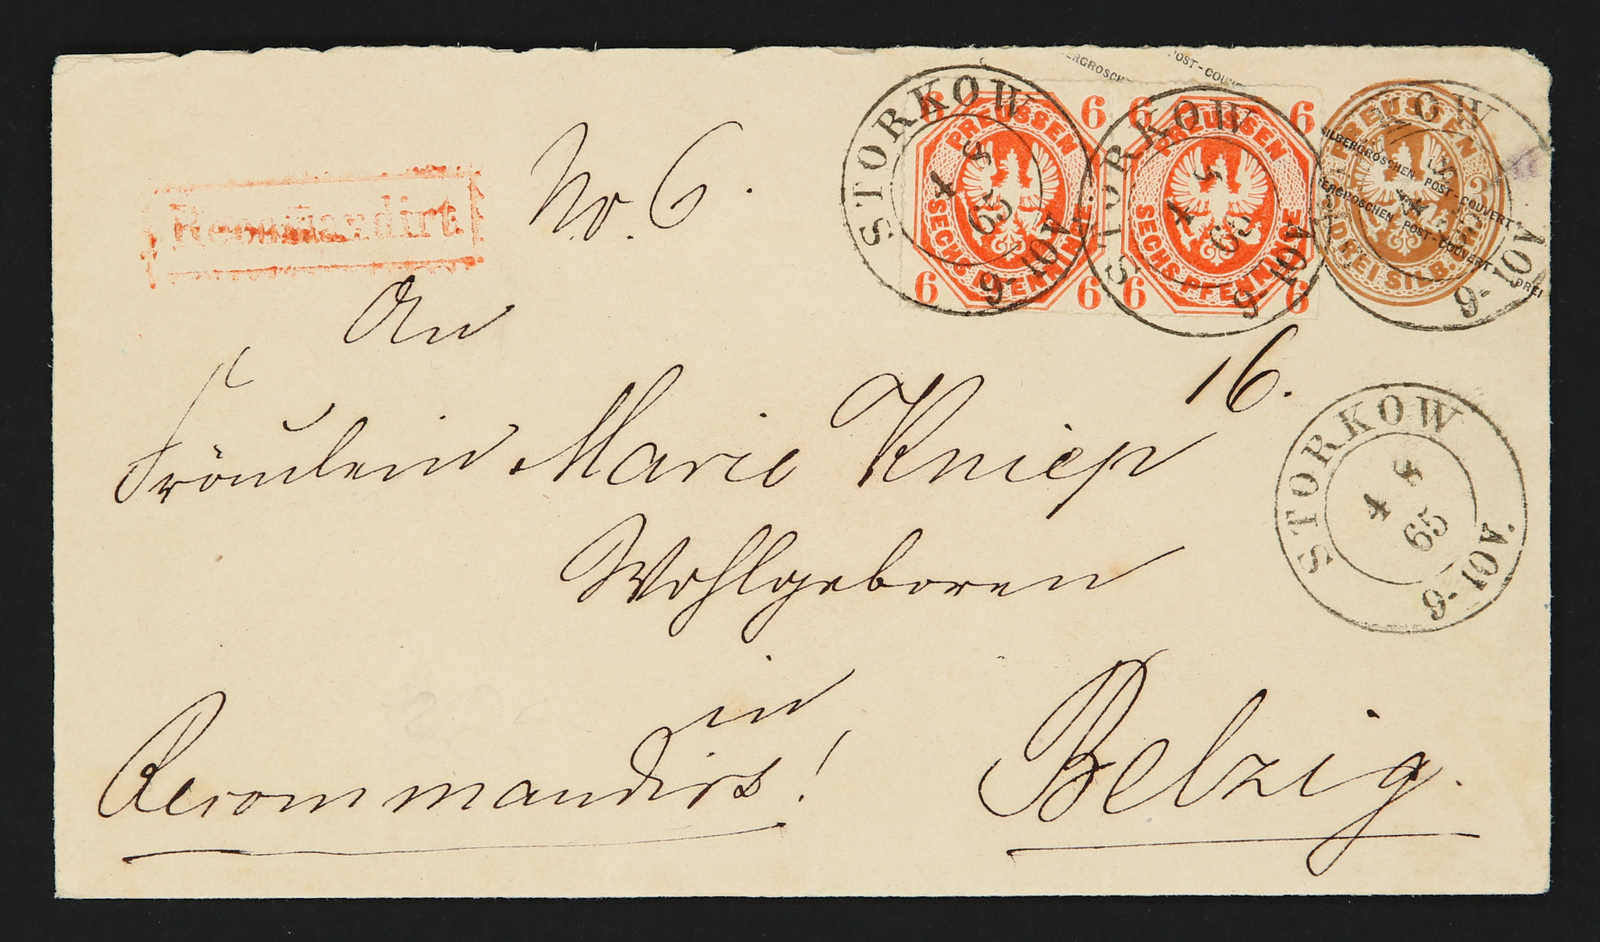 ERGROSCHEN
POST-COUVERT
6 6
PREUSSEN
SECHS PFENNINGE
6 6
6 6
PREUSSEN
SECHS PFENNINGE
6 6
PREUSSEN
3 3
DREI SILB. GR.
SILBERGROSCHEN POST-COUVERT
ERGROSCHEN POST-COUVERT DREI
STORKOW
4 4
65
9-10V.
STORKOW
4 4
65
9-10V.
STORKOW
4 4
65
9-10V.
Recommandirt
No. 6.
An
16.
Fräulein Marie Kniep
STORKOW
4 4
65
9-10V.
Wohlgeboren
in
Recommandirt!
Belzig.